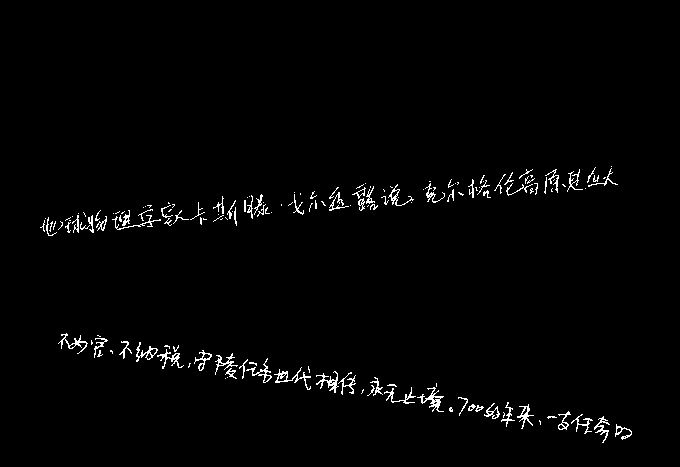 地球物理学家卡斯滕·戈尔透露说,克尔格伦高原是仅大
不为官、不纳税,守陵任务世代相传,永无止境。700多年来,一支任务的